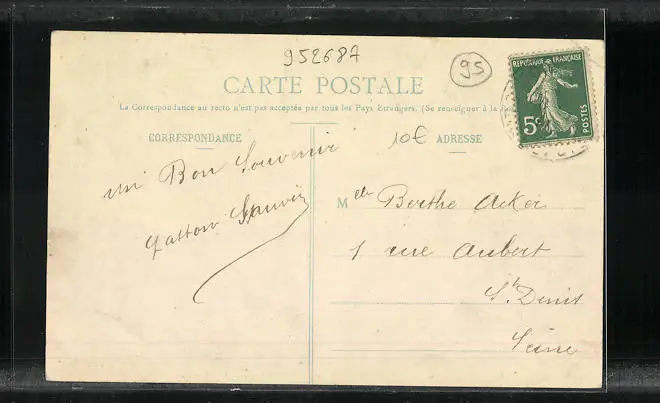 952687
95
CARTE POSTALE
La Correspondance au recto n'est pas acceptée par tous les Pays Etrangers. (Se renseigner à la
REPUBLIQUE FRANÇAISE
5c
POSTES
CORRESPONDANCE
10€
ADRESSE
un Bon Souvenir
Gaston
Mdlle Berthe Acker
1 rue Aubert
St Denis
Seine